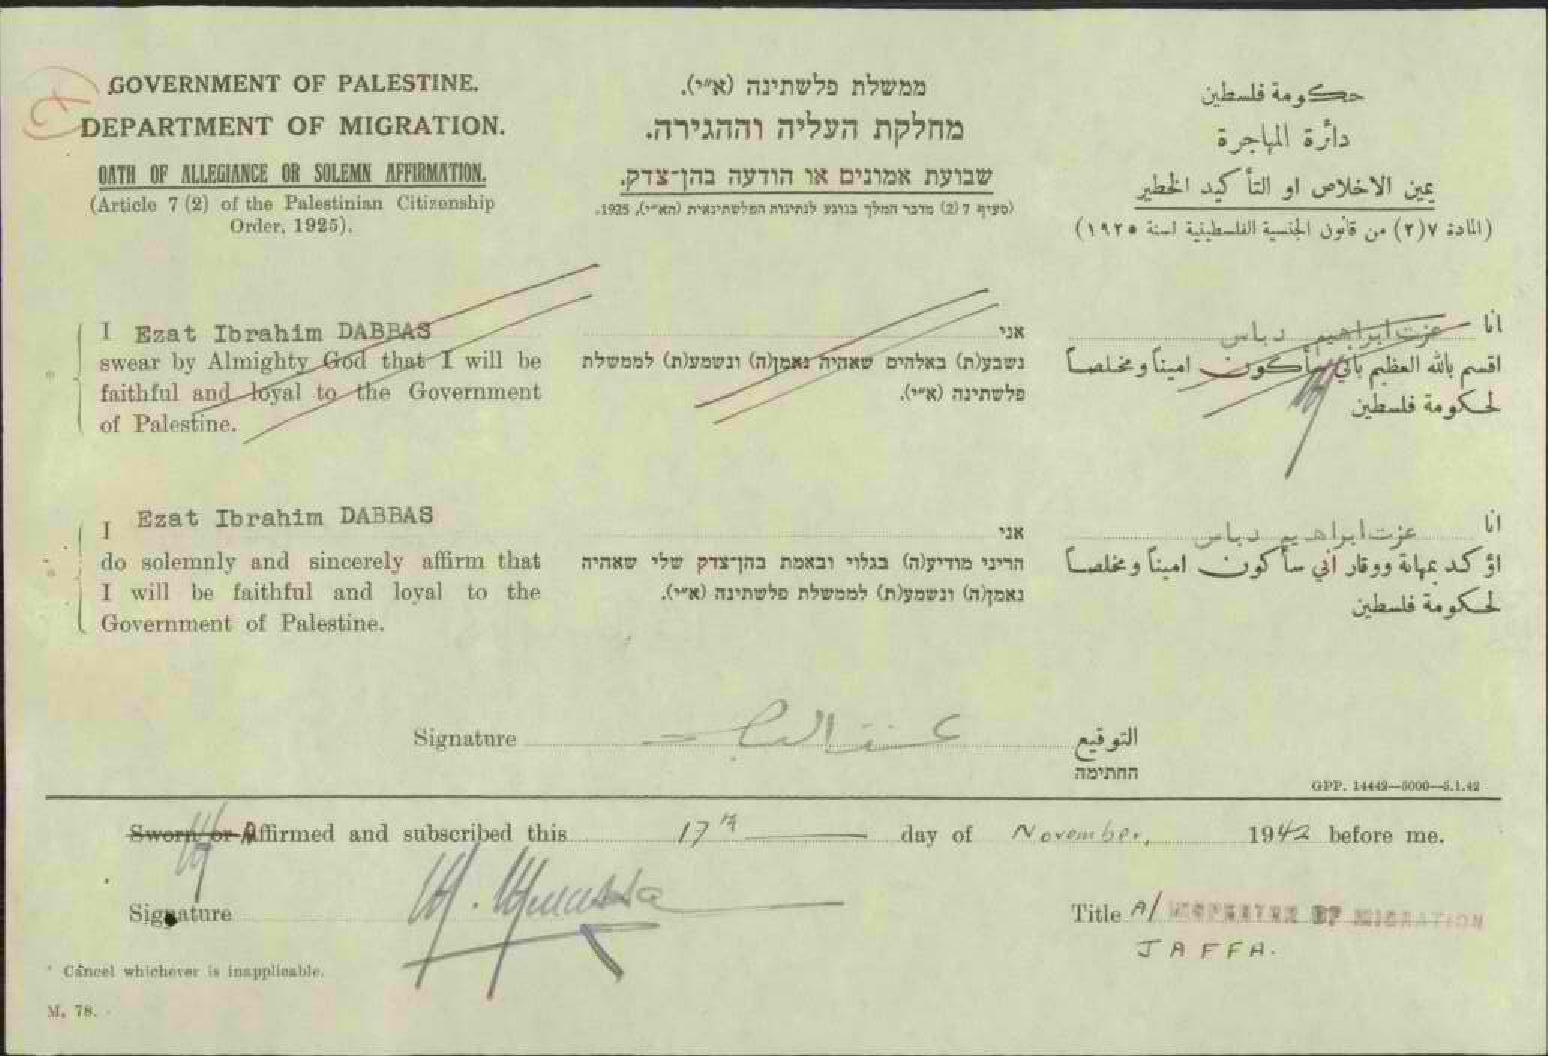 GOVERNMENT OF PALESTINE.
DEPARTMENT OF MIGRATION.
OATH OF ALLEGIANCE OR SOLEMN AFFIRMATION.
(Article 7 (2) of the Palestinian Citizenship
Order, 1925).
ממשלת פלשתינה (א״י).
מחלקת העליה וההגירה.
שבועת אמונים או הודעה בהן־צדק.
(סעיף 7 (2) מדבר המלך בנוגע לנתינות הפלשתינאית (הא״י), 1925.
حكومة فلسطين
دائرة المهاجرة
يمين الاخلاص او التأكيد الخطير
(المادة ٧(٢) من قانون الجنسية الفلسطينية لسنة ١٩٢٥)
I Ezat Ibrahim DABBAS
swear by Almighty God that I will be
faithful and loyal to the Government
of Palestine.
אני
נשבע(ת) באלהים שאהיה נאמן(ה) ונשמע(ת) לממשלת
פלשתינה (א״י).
انا عزت ابراهيم دباس
اقسم بالله العظيم باني سأكون اميناً ومخلصاً
لحكومة فلسطين
I Ezat Ibrahim DABBAS
do solemnly and sincerely affirm that
I will be faithful and loyal to the
Government of Palestine.
אני
הריני מודיע(ה) בגלוי ובאמת בהן־צדק שלי שאהיה
נאמן(ה) ונשמע(ת) לממשלת פלשתינה (א״י).
انا عزت ابراهيم دباس
اؤكد بمهابة ووقار اني سأكون اميناً ومخلصاً
لحكومة فلسطين
Signature التوقيع
החתימה
GPP. 14442—5000—5.1.42
Sworn or Affirmed and subscribed this 17th day of November, 1942 before me.
Signature Title A/ INSPECTOR OF MIGRATION
JAFFA.
* Cancel whichever is inapplicable.
M. 78.